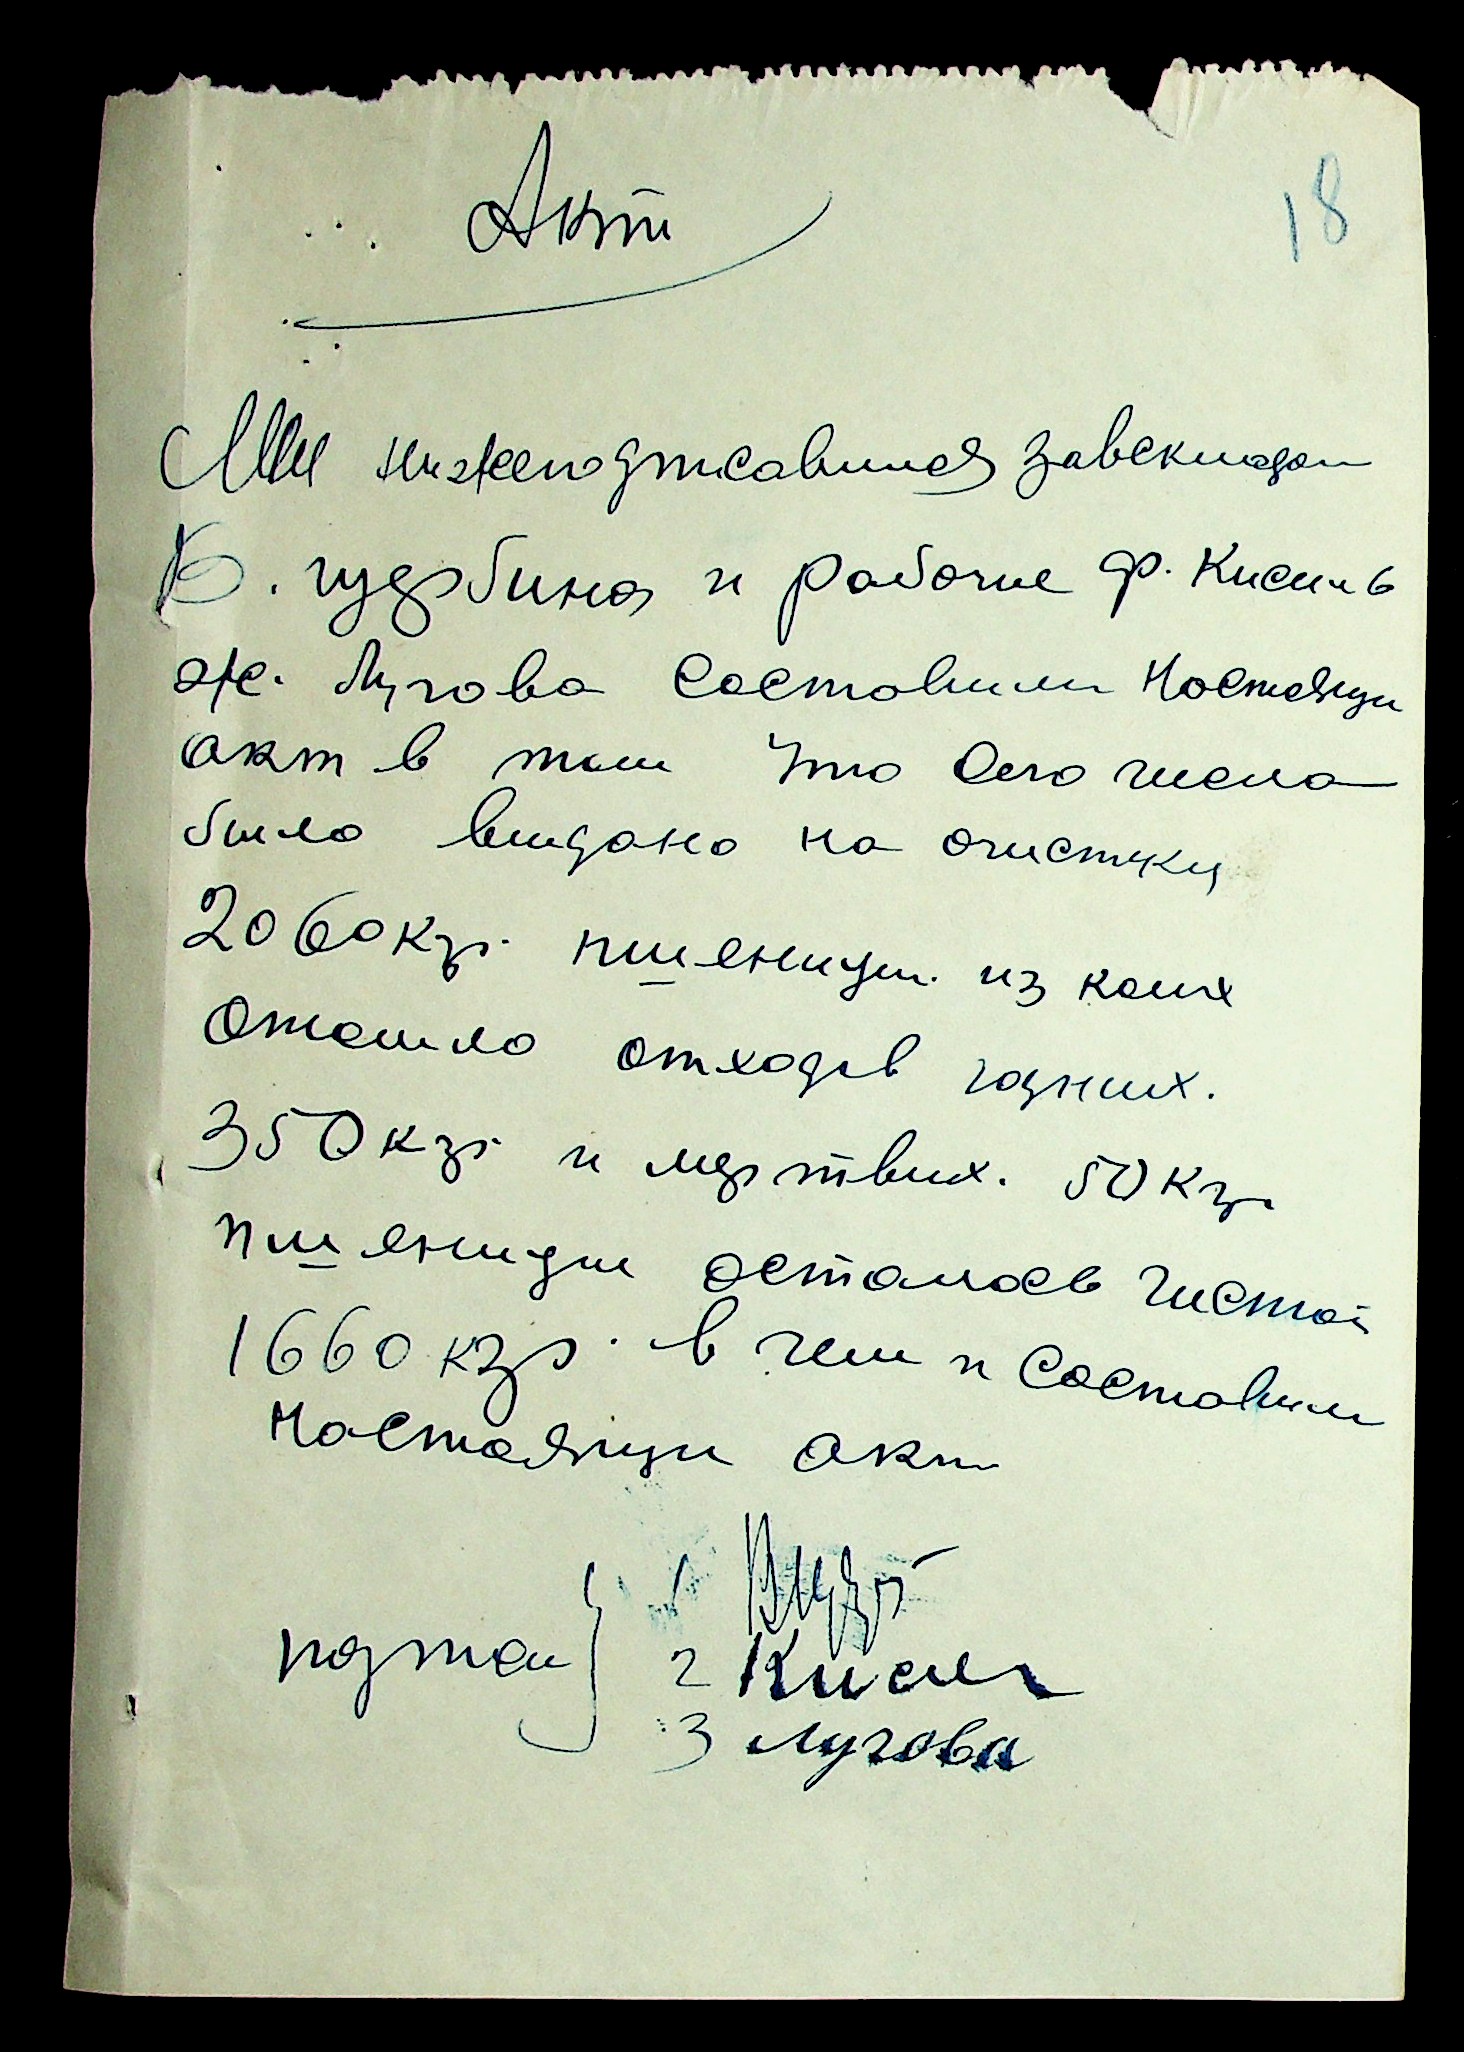 Акт
18
Ми нижеподписавшися завскладом
В. гудзбина и рабочие ф. Кисиль
ж. Лугова составили Настоящи
акт в том что сего числа
было видано на очистку
2060 кгр. пшеници. из коих
отошло отходов годних.
350 кгр и мертвих. 50 кгр
пшеници осталось чистой
1660 кгр. в чем и составили
Настоящи акт
1
2 Кисиль
3 Лугова